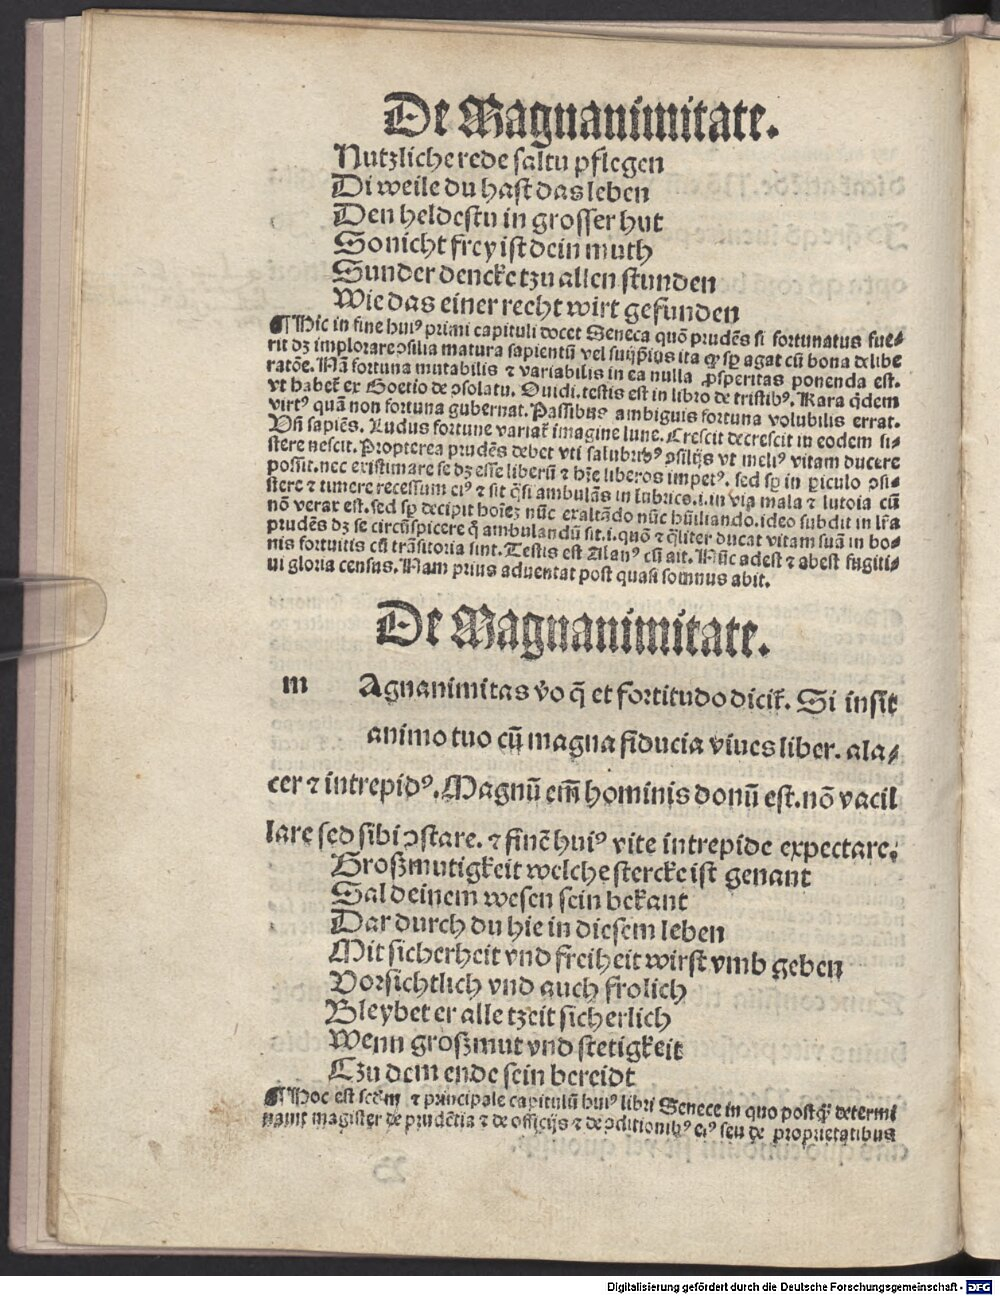 De Magnanimitate.
Nutzliche rede saltu pflegen
Di weile du hast das leben
Den heldestu in grosser hut
So nicht frey ist dein muth
Sunder dencke tzu allen stunden
Wie das einer recht wirt gefunden
¶Hic in fine huiꝰ primi capituli docet Seneca quō prudēs si fortunatus fue⸗
rit dꝫ implorare ↄsilia matura sapientū vel suijp̄ius ita ꝙ sꝑ agat cū bona delibe
ratōe. Nā fortuna mutabilis ⁊ variabilis in ea nulla ꝓsperitas ponenda est.
vt habet᷑ ex Boetio de ↄsolatu. Ouidi. testis est in libro de tristibꝰ. Rara q̇dem
virtꝰ quā non fortuna gubernat. Passibus ambiguis fortuna volubilis errat.
Vn̄ sapiēs. Ludus fortune variat᷑ imagine lune. Crescit decrescit in eodem si⸗
stere nescit. Propterea prudēs debet vti salubribꝰ ↄsilijs vt meliꝰ vitam ducere
possit. nec existimare se dꝫ esse liberū ⁊ hr̄e liberos impetꝰ. sed sꝑ in ꝑiculo ↄsi⸗
stere ⁊ timere recessum eiꝰ ⁊ sit q̄si ambulās in lubrico. i. in via mala ⁊ lutosa cū
nō verax est. sed sꝑ decipit hoīes nūc exaltādo nūc hūiliando. ideo subdit in lr̄a
prudēs dꝫ se circūspicere q̄ ambulandū sit. i. quō ⁊ q̄liter ducat vitam suā in bo⸗
nis fortuitis cū trāsitoria sint. Testis est Alanꝰ cū ait. Nūc adest ⁊ abest fugiti⸗
ui gloria census. Nam prius aduentat post quasi somnus abit.
De Magnanimitate.
m Agnanimitas v̄o q̄ et fortitudo dicit᷑. Si insit
animo tuo cū magna fiducia viues liber. ala⸗
cer ⁊ intrepidꝰ. Magnū em̄ hominis donū est. nō vacil
lare sed sibi ↄstare. ⁊ finē huiꝰ vite intrepide expectare.
Großmutigkeit welche stercke ist genant
Sal deinem wesen sein bekant
Dar durch du hie in diesem leben
Mit sicherheit vnd freiheit wirst vmb geben
Vorsichtlich vnd auch frolich
Bleybet er alle tzeit sicherlich
Wenn großmut vnd stetigkeit
Tzu dem ende sein bereidt
¶Hoc est scd̄m ⁊ principale capitulū huiꝰ libri Senece in quo postq̄ȝ determi
nauit magister de prudētia ⁊ de officijs ⁊ de ↄditionibꝰ eiꝰ seu de proprietatibus
Digitalisierung gefördert durch die Deutsche Forschungsgemeinschaft - DFG